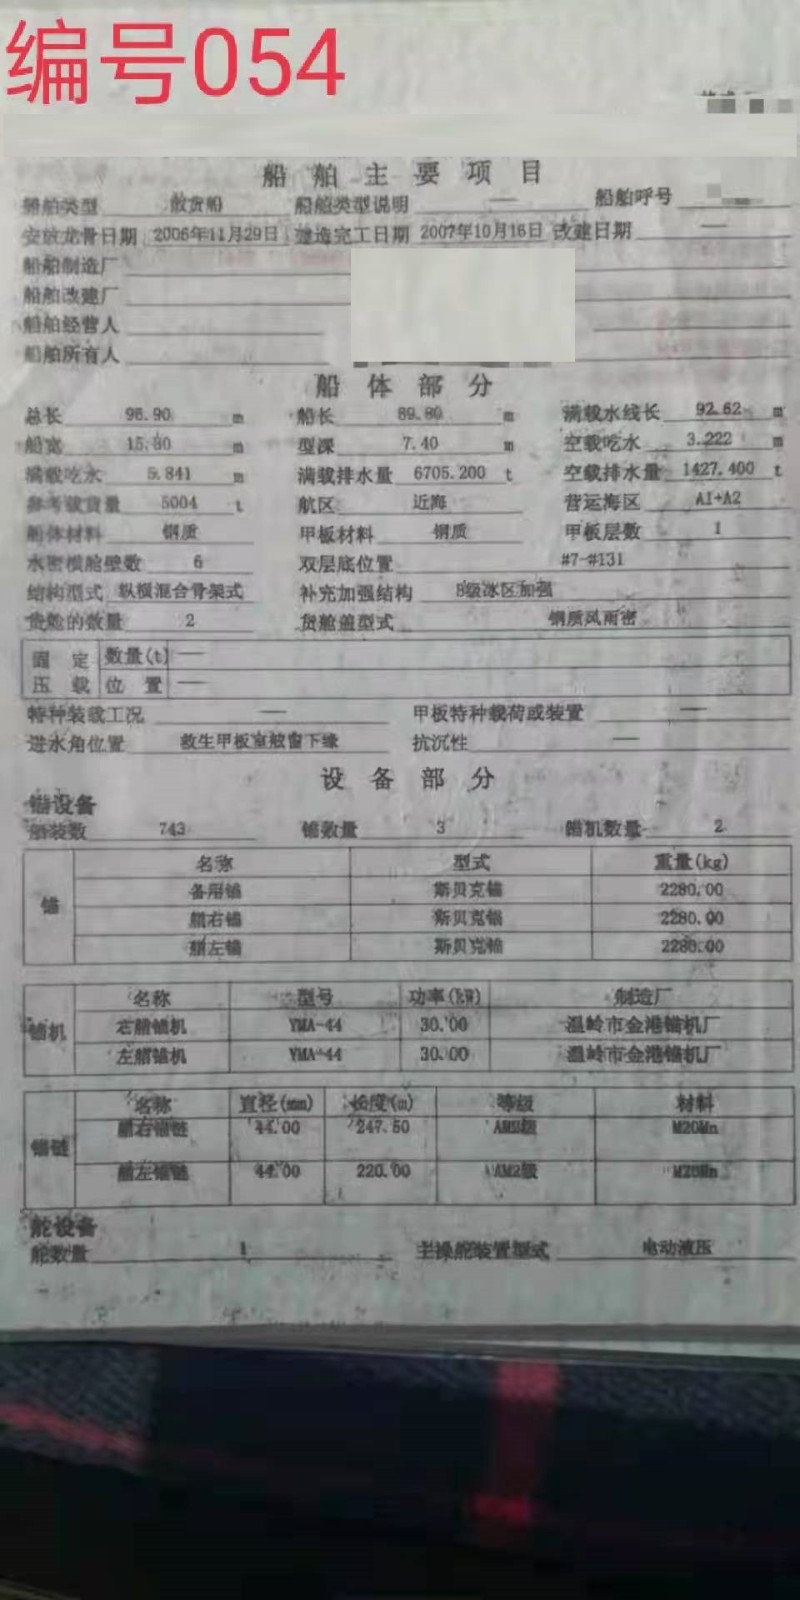 编号054
船舶主要项目
船舶类型 散货船 船舶类型说明 — 船舶呼号
安放龙骨日期 2006年11月29日 建造完工日期 2007年10月16日 改建日期 —
船舶制造厂
船舶改建厂
船舶经营人
船舶所有人
船体部分
总长 96.90 m 船长 89.80 m 满载水线长 92.62 m
船宽 15.80 m 型深 7.40 m 空载吃水 3.222 m
满载吃水 5.841 m 满载排水量 6705.200 t 空载排水量 1427.400 t
参考载货量 5004 t 航区 近海 营运海区 A1+A2
船体材料 钢质 甲板材料 钢质 甲板层数 1
水密横舱壁数 6 双层底位置 #7-#131
结构型式 纵横混合骨架式 补充加强结构 B级冰区加强
货舱的数量 2 货舱盖型式 钢质风雨密
固定压载 数量(t) —
位置 —
特种装载工况 — 甲板特种载荷或装置 —
进水角位置 救生甲板室舷窗下缘 抗沉性 —
设备部分
锚设备
舾装数 743 锚数量 3 锚机数量 2
锚 名称 型式 重量(kg)
备用锚 斯贝克锚 2280.00
艏右锚 斯贝克锚 2280.00
艏左锚 斯贝克锚 2280.00
锚机 名称 型号 功率(kW) 制造厂
右艏锚机 YMA-44 30.00 温岭市金港锚机厂
左艏锚机 YMA-44 30.00 温岭市金港锚机厂
锚链 名称 直径(mm) 长度(m) 等级 材料
艏右锚链 44.00 247.50 AM2级 M20Mn
艏左锚链 44.00 220.00 AM2级 M20Mn
舵设备
舵数量 1 主操舵装置型式 电动液压